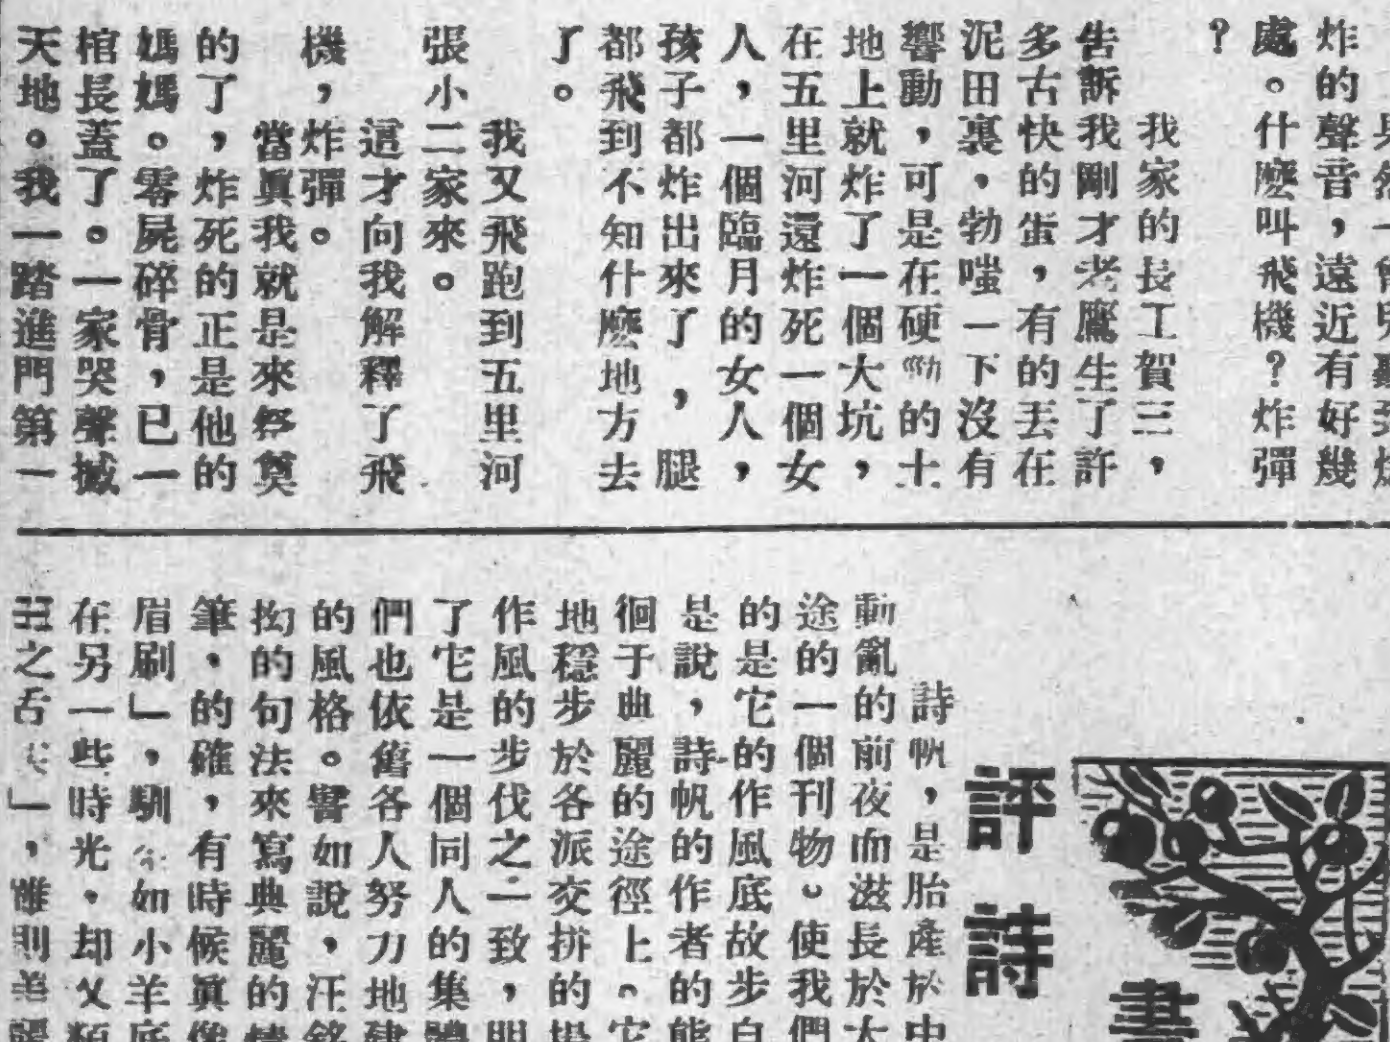 炸的聲音，遠近有好幾
處。什麼叫飛機？炸彈
？
我家的長工賀三，
告訴我剛才老鷹生了許
多古快的蛋，有的丟在
泥田裏，勃嗤一下沒有
響動，可是在硬的土
地上就炸了一個大坑，
在五里河還炸死一個女
人，一個臨月的女人，
孩子都炸出來了，腿
都飛到不知什麼地方去
了。
我又飛跑到五里河
張小二家來。
這才向我解釋了飛
機，炸彈。
當眞我就是來祭奠
的了，炸死的正是他的
媽媽。零屍碎骨，已一
棺長蓋了。一家哭聲撼
天地。我一踏進門第一
書
評詩
詩帆，是胎產於中
動亂的前夜而滋長於大
途的一個刊物。使我們
的是它的作風底故步自
是說，詩帆的作者的能
徊于典麗的途徑上。它
地穩步於各派交拼的
作風的步伐之一致，明
了它是一個同人的集體
們也依舊各人努力地建
的風格。譬如說，汪銘
拗的句法來寫典麗的情
筆。的確，有時候眞像
眉刷」，馴如小羊底
在另一些時光，却又類
之舌」，雖則美麗